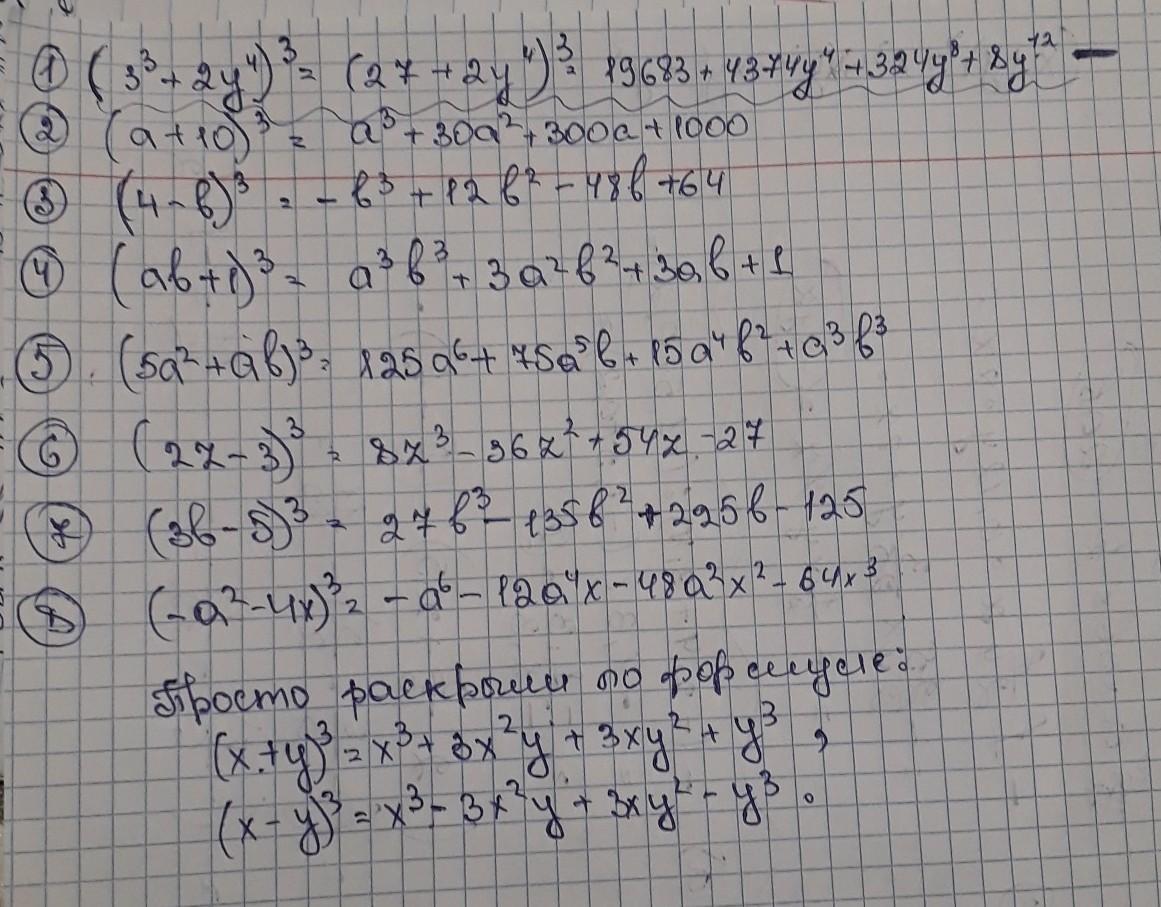 ① (3³ + 2y⁴)³ = (27 + 2y⁴)³ = 19683 + 4374y⁴ + 324y⁸ + 8y¹² —
② (a + 10)³ = a³ + 30a² + 300a + 1000
③ (4 - b)³ = - b³ + 12b² - 48b + 64
④ (ab + 1)³ = a³b³ + 3a²b² + 3ab + 1
⑤ (5a² + ab)³ = 125a⁶ + 75a⁵b + 15a⁴b² + a³b³
⑥ (2z - 3)³ = 8z³ - 36z² + 54z - 27
⑦ (3b - 5)³ = 27b³ - 135b² + 225b - 125
⑧ (-a² - 4x)³ = - a⁶ - 12a⁴x - 48a²x² - 64x³
Просто раскрыли по формуле:
(x + y)³ = x³ + 3x²y + 3xy² + y³ ,
(x - y)³ = x³ - 3x²y + 3xy² - y³ .